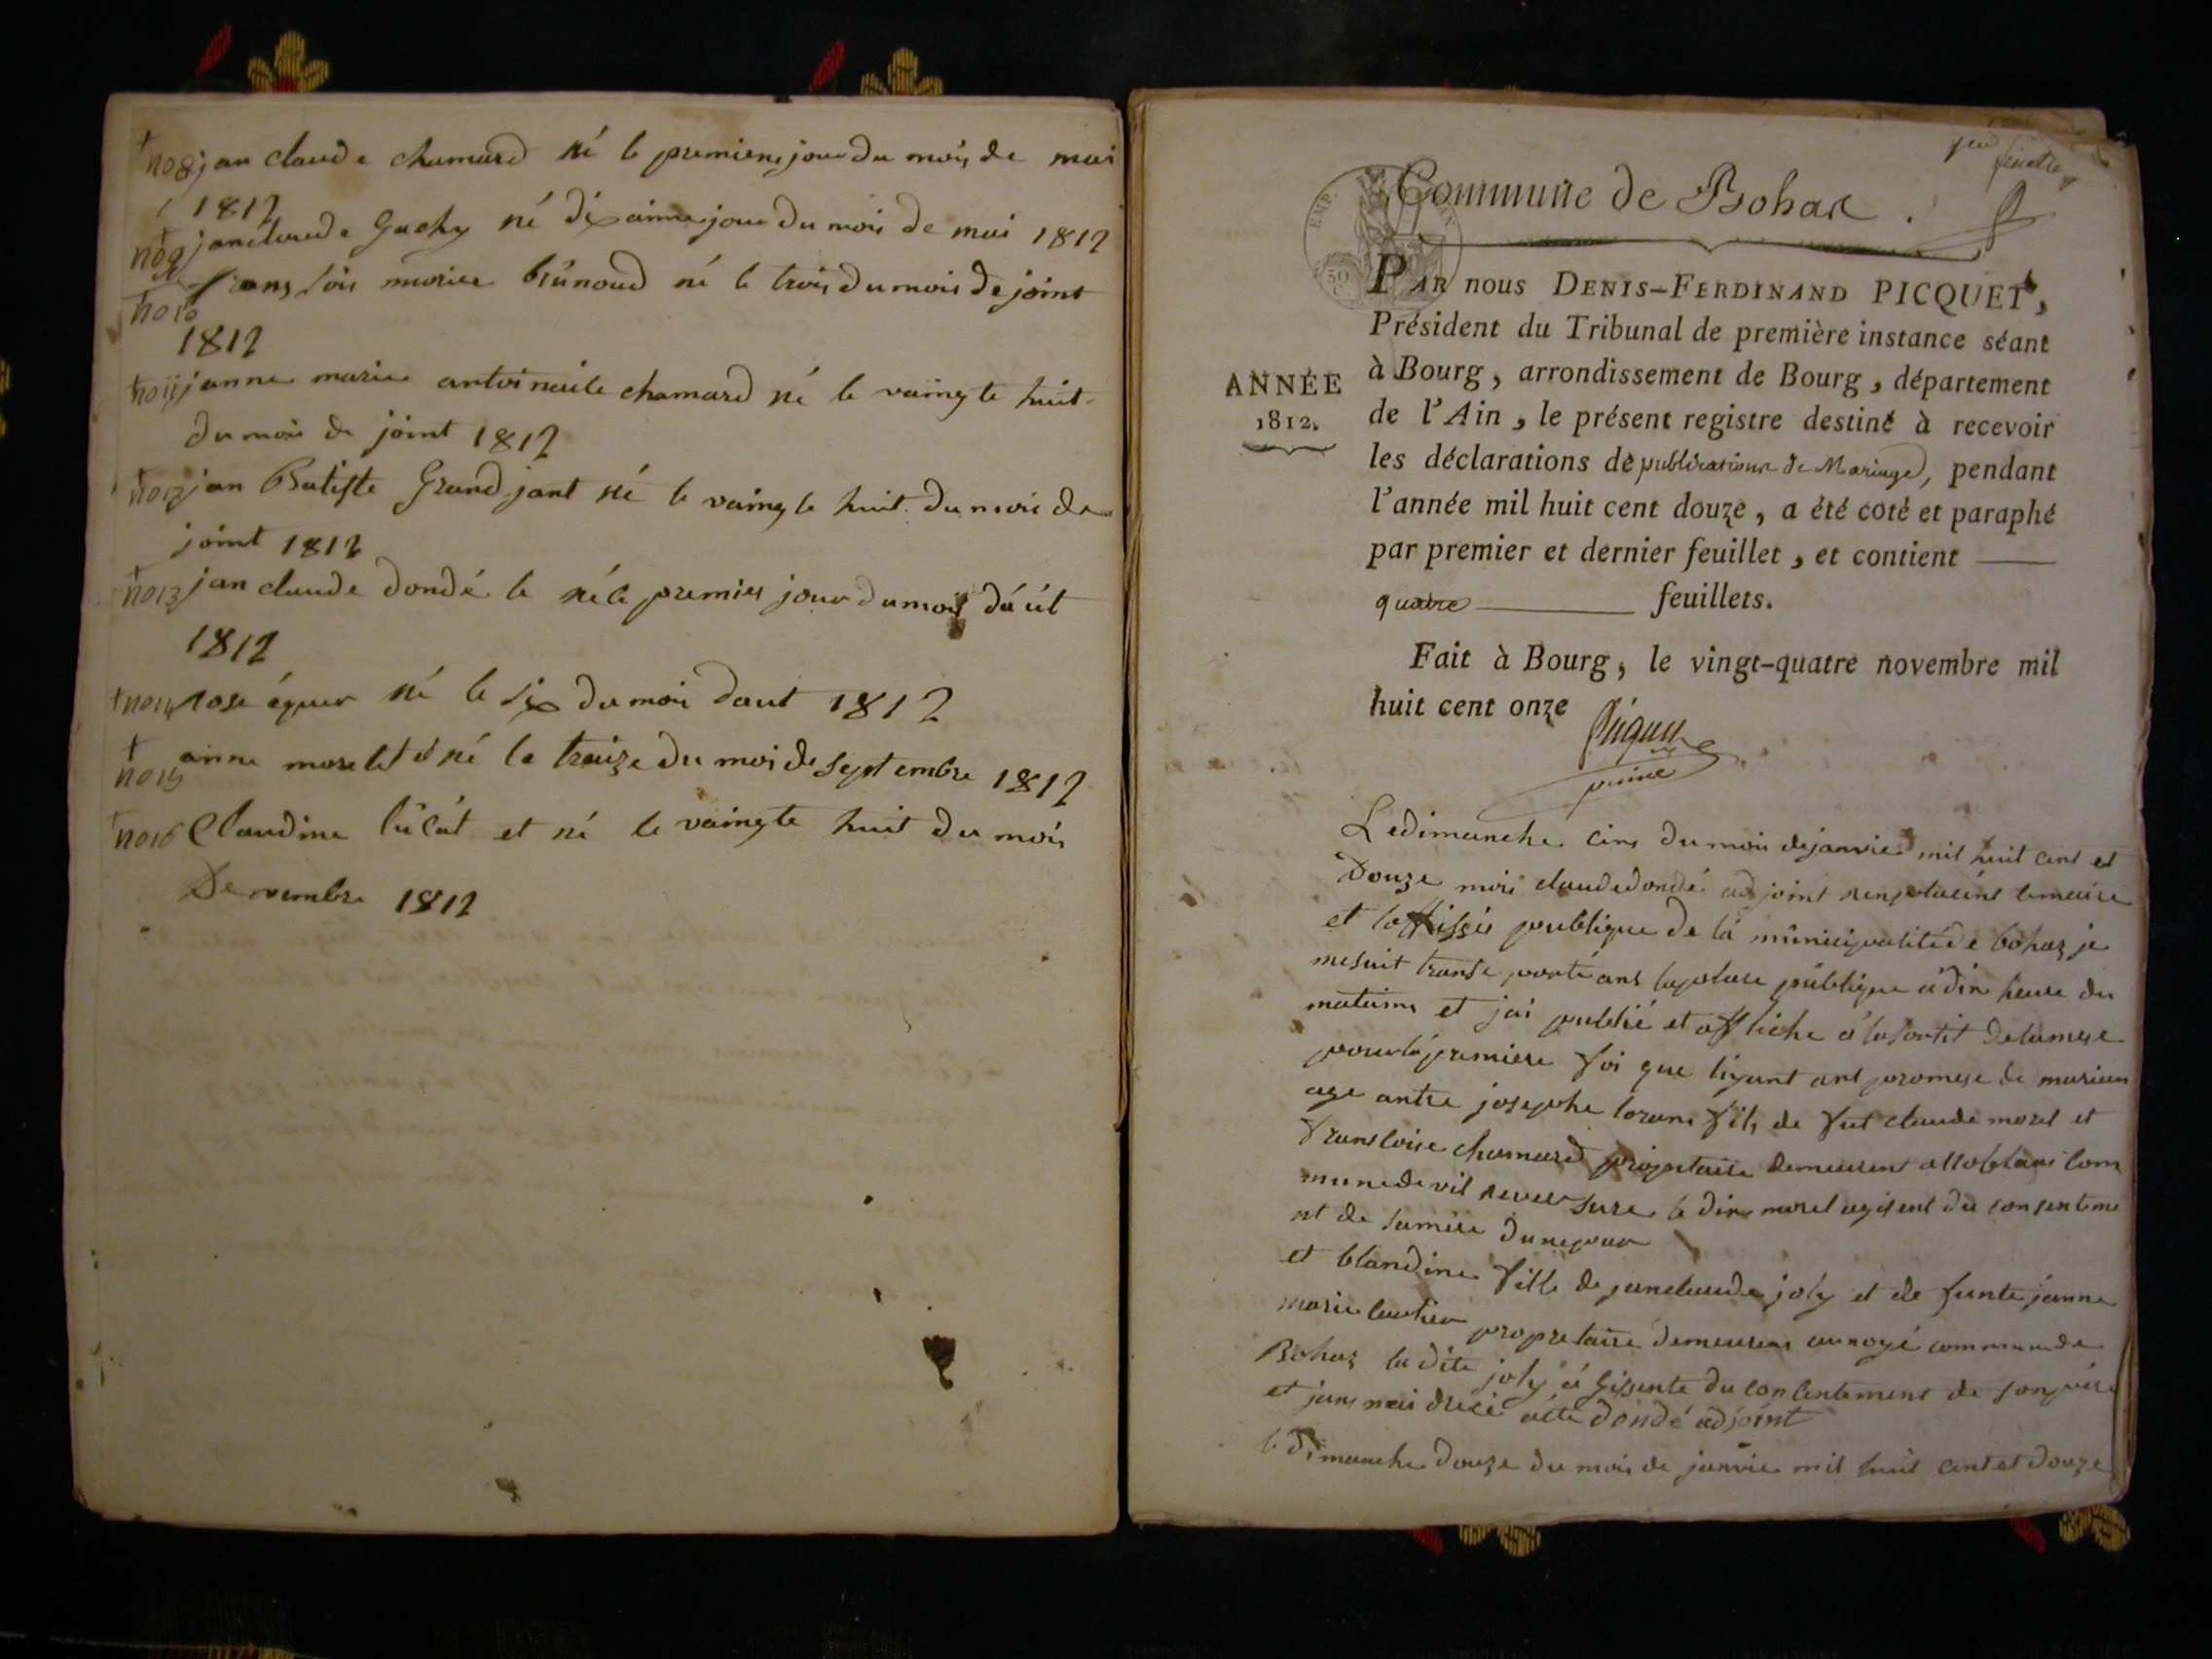 no8 jan claude chamard né le premiere jour du mois de mai
1812
no9 janclaude Gachy né dixainne jour du mois de mai 1812
no10 fransois morise brúnoud né le trois du mois de joint
1812
no11 janne marie antoinaite chamard né le vaingte huit
du mois de joint 1812
no12 jan Batiste Grand jant né le vaingte huit du mois de
joint 1812
no13 jan claude dondé le né le premier jour du mois dáút
1812
no14 rose éguer né le six du mois daut 1812
no15 anne moret né le traize du mois de septembre 1812
no16 Claudine lúcát et né le vaingte huit du mois
De vembre 1812
Commune de Bohas
EMP.
PAR nous DENIS-FERDINAND PICQUET,
Président du Tribunal de première instance séant
à Bourg, arrondissement de Bourg, département
ANNÉE
1812.
de l'Ain, le présent registre destiné à recevoir
les déclarations de publications de Mariage, pendant
l'année mil huit cent douze, a été coté et paraphé
par premier et dernier feuillet, et contient
quatre feuillets.
Fait à Bourg, le vingt-quatre novembre mil
huit cent onze
Le dimanche cins du mois de janvie mil huit cent et
Douze mois claude dondé adjoint remplacint lemaire
et loffissie publique de lá múnicipalité de bohas je
me suit transe porté ans la plase publique á dix heure du
matains et jai publié et affiche á la sortit de la mese
pour lá premiere foi que liyant ant promese de mariem
age antre josephe lorans fils de fut claude morel et
fransoise chamard propretaire demeurent
mune de vil reversure le dix morel agisent du consenteme
nt de sa mère dunepour
et blandine fille de janclaude joly et de funte janne
marie propretaire demeurens au noyé commune de
Bohas la dite joly á gissente du consentement de son père
et jans nai dresé acte dondé adjoint
le dimanche douze du mois de janvie mil huit cent et douze